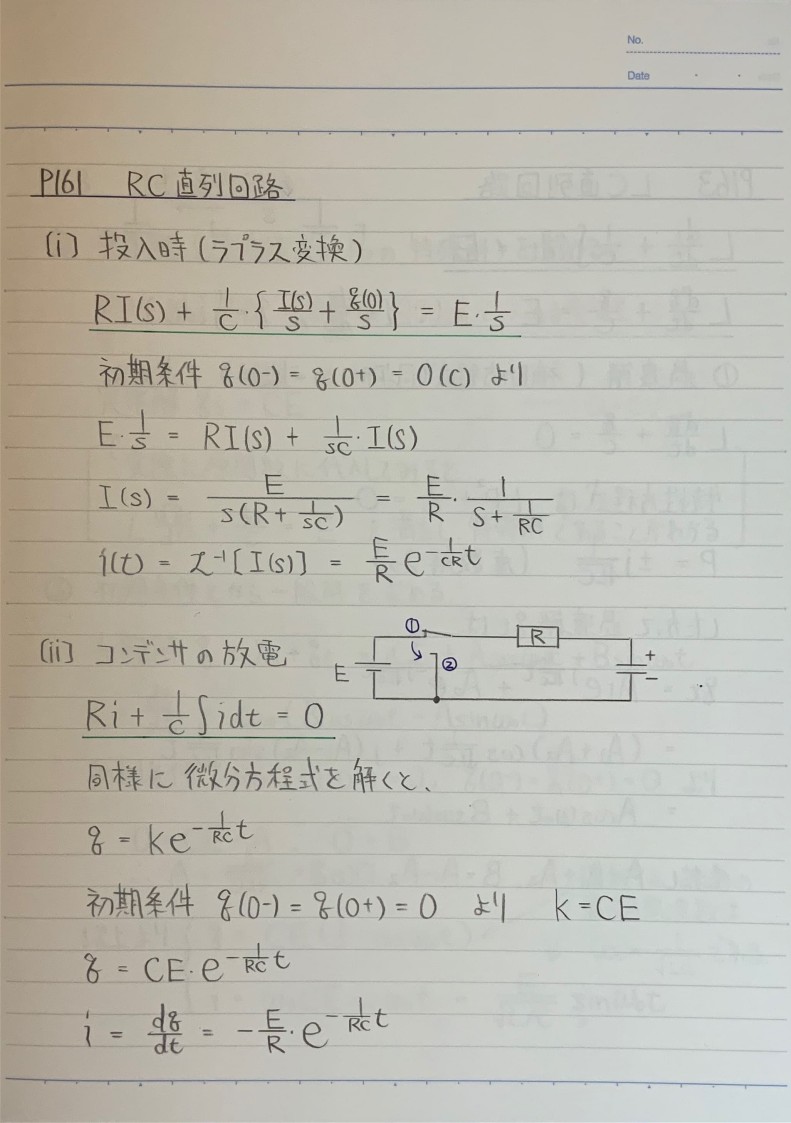 No.
Date
P161 RC直列回路
(i) 投入時(ラプラス変換)
RI(s) + 1/C・{I(s)/s + q(0)/s} = E・1/s
初期条件 q(0-) = q(0+) = 0(C) より
E・1/s = RI(s) + 1/sC・I(s)
I(s) = E/(s(R + 1/sC)) = E/R・1/(s + 1/RC)
i(t) = ℒ⁻¹[I(s)] = E/R e^(-1/CR t)
(ii) コンデンサの放電
E ① ② R + −
Ri + 1/C ∫idt = 0
同様に微分方程式を解くと、
q = ke^(-1/RC t)
初期条件 q(0-) = q(0+) = 0 より k = CE
q = CE・e^(-1/RC t)
i = dq/dt = -E/R・e^(-1/RC t)